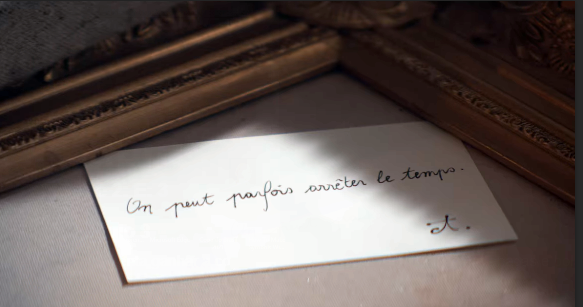 On peut parfois arrêter le temps.
A.